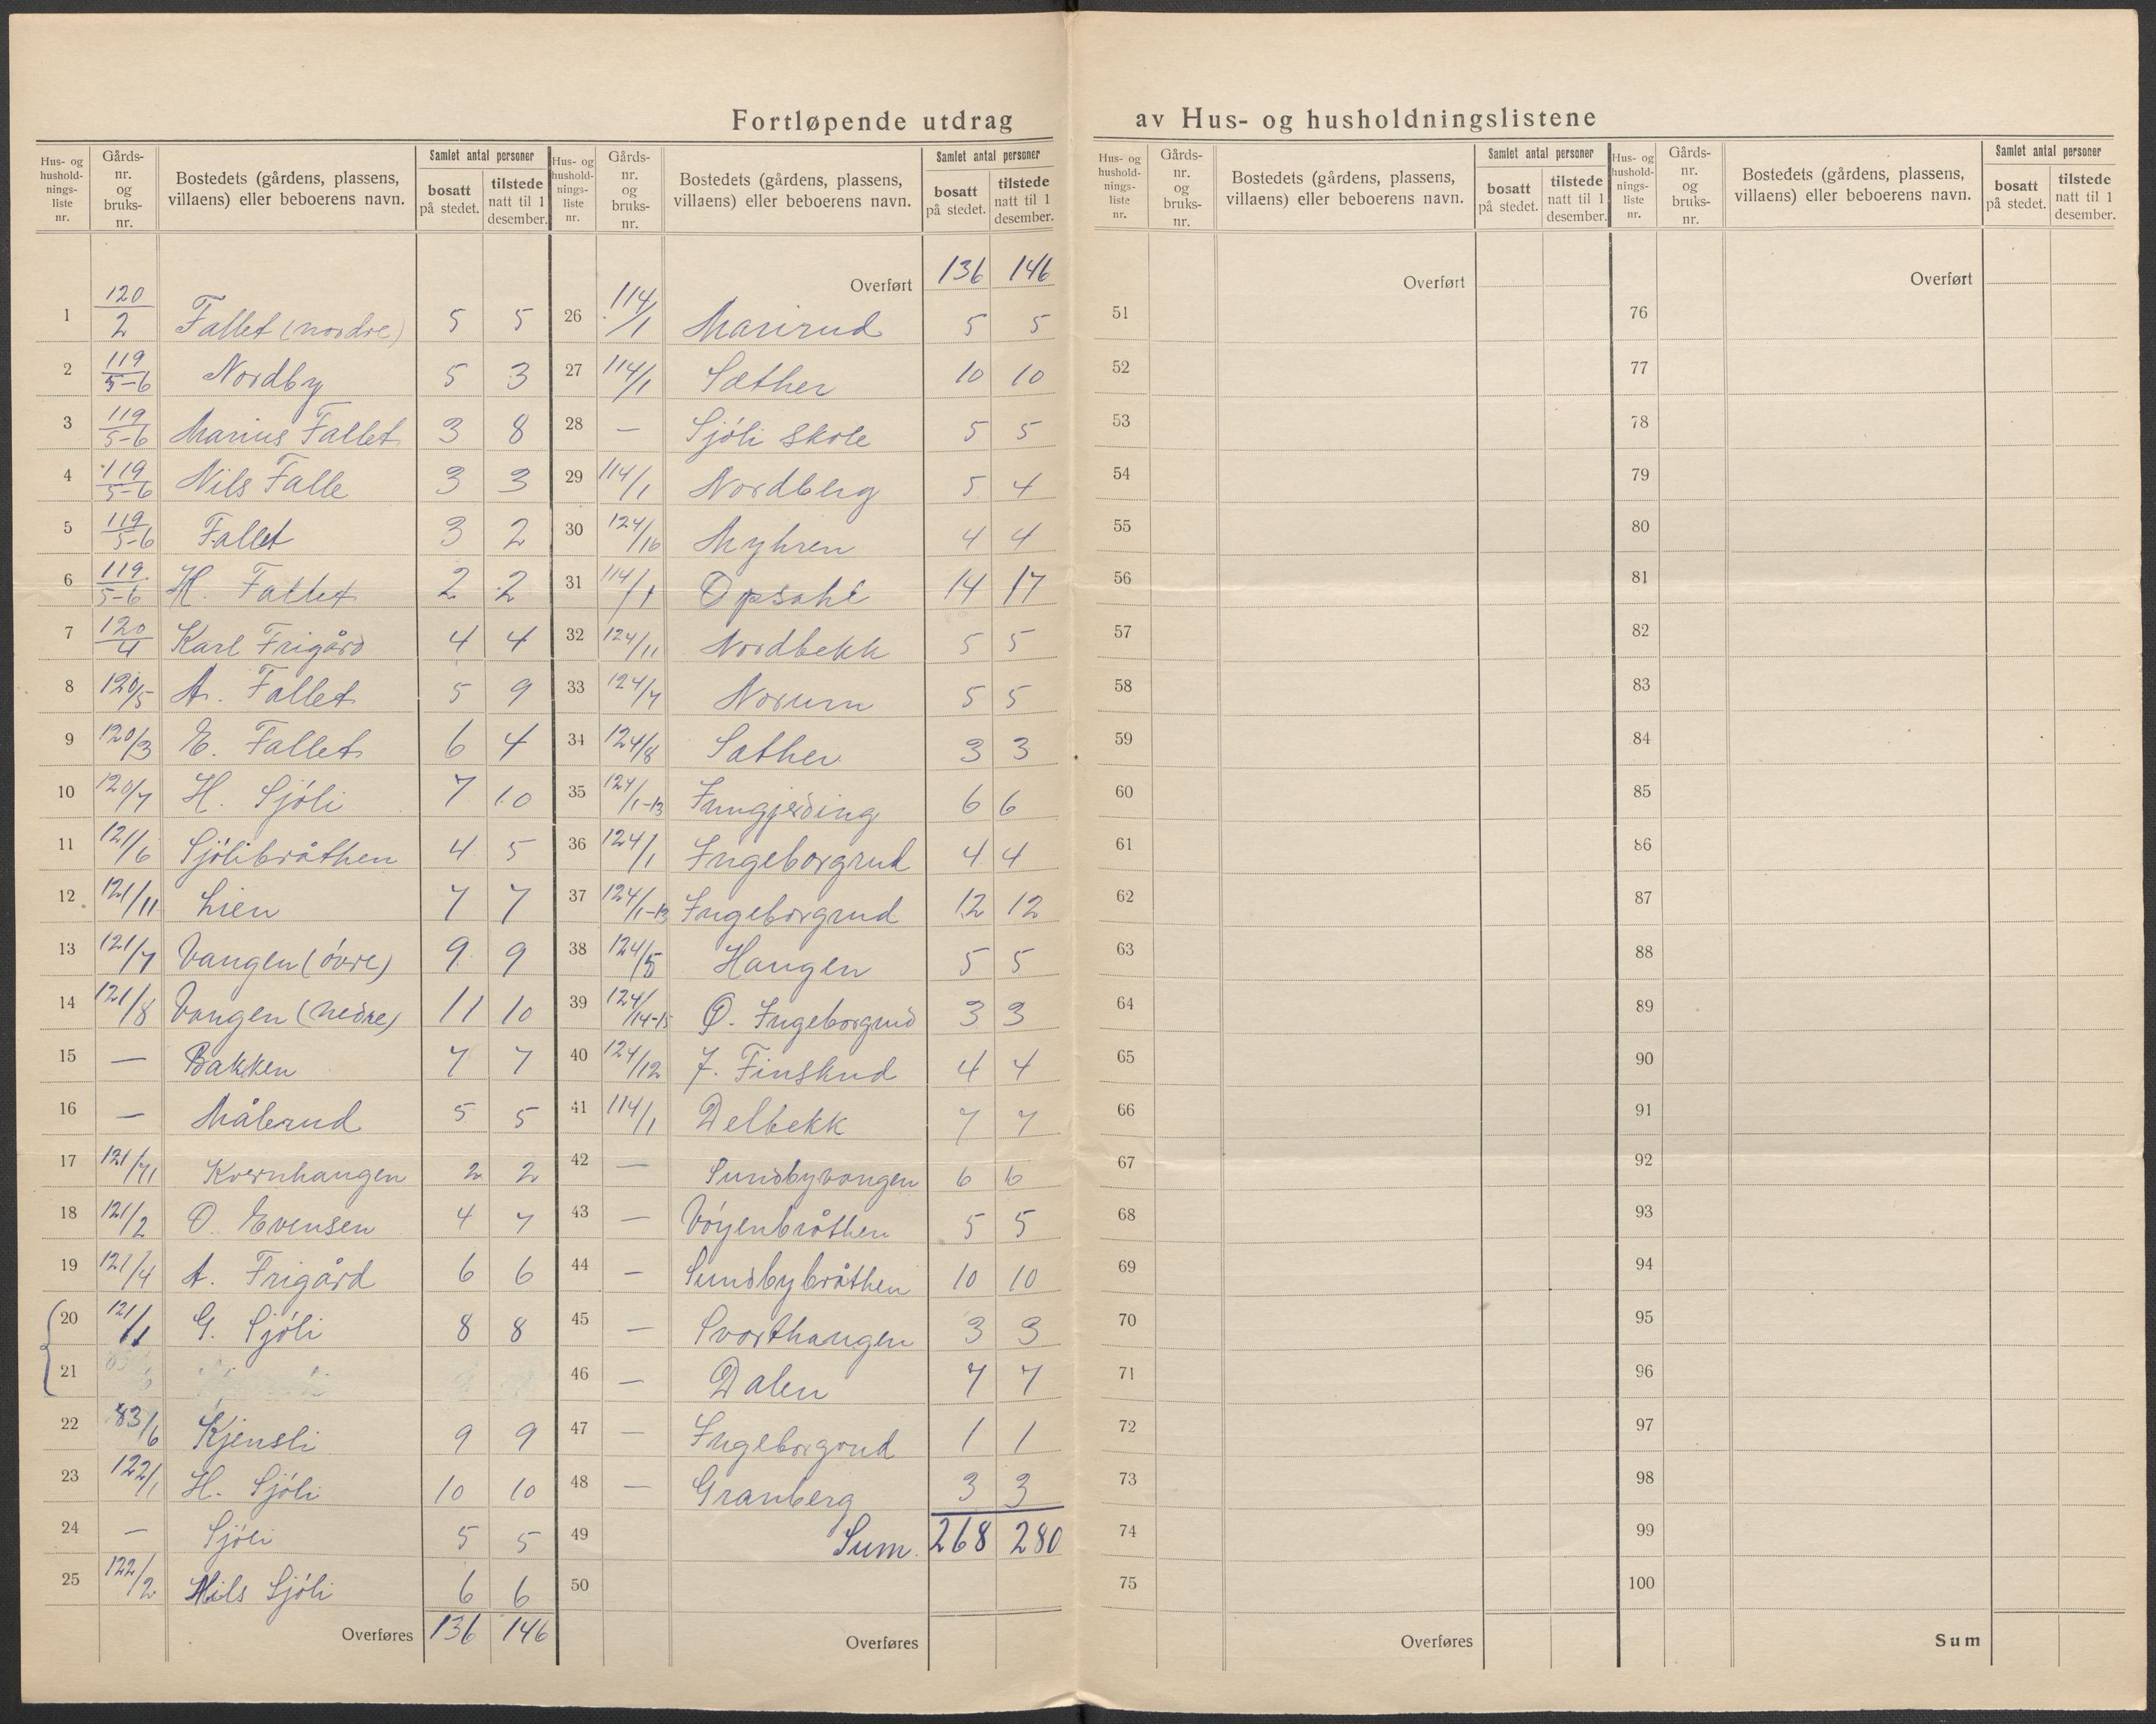 Fortløpende utdrag av Hus- og husholdningslistene
Hus- og hushold-nings-liste nr. | Gårds-nr. og bruks-nr. | Bostedets (gårdens, plassens, villaens) eller beboerens navn. | Samlet antal personer | bosatt på stedet. | tilstede natt til 1 desember.
1 | 120/2 | Fallet (nordre) | 5 | 5
2 | 119/5-6 | Nordby | 5 | 3
3 | 119/5-6 | Marius Fallet | 3 | 8
4 | 119/5-6 | Nils Falle | 3 | 3
5 | 119/5-6 | Fallet | 3 | 2
6 | 119/5-6 | H. Fallet | 2 | 2
7 | 120/4 | Karl Frigård | 4 | 4
8 | 120/5 | A. Fallet | 5 | 9
9 | 120/3 | E. Fallet | 6 | 4
10 | 120/7 | H. Sjöli | 7 | 10
11 | 121/6 | Sjölibråthen | 4 | 5
12 | 121/11 | Lien | 7 | 7
13 | 121/7 | Vangen (övre) | 9 | 9
14 | 121/8 | Vangen (nedre) | 11 | 10
15 | — | Bakken | 7 | 7
16 | — | Målerud | 5 | 5
17 | 121/ | Kvernhaugen | 2 | 2
18 | 121/2 | O. Evensen | 4 | 7
19 | 121/4 | A. Frigård | 6 | 6
20 | 121/1 | G. Sjöli | 8 | 8
21
22 | 83/6 | Kjensli | 9 | 9
23 | 122/1 | H. Sjöli | 10 | 10
24 | — | Sjöli | 5 | 5
25 | 122/2 | Nils Sjöli | 6 | 6
Overføres | 136 | 146
Hus- og hushold-nings-liste nr. | Gårds-nr. og bruks-nr. | Bostedets (gårdens, plassens, villaens) eller beboerens navn. | Samlet antal personer | bosatt på stedet. | tilstede natt til 1 desember.
Overført | 136 | 146
26 | 114/1 | Marirud | 5 | 5
27 | 114/1 | Sæther | 10 | 10
28 | — | Sjöli skole | 5 | 5
29 | 114/1 | Nordberg | 5 | 4
30 | 124/16 | Myhren | 4 | 4
31 | 114/1 | Opsahl | 14 | 17
32 | 124/11 | Nordbekk | 5 | 5
33 | 124/7 | Norum | 5 | 5
34 | 124/8 | Sæther | 3 | 3
35 | 124/1-13 | 6 | 6
36 | 124/1 | Ingeborgrud | 4 | 4
37 | 124/1-13 | Ingeborgrud | 12 | 12
38 | 124/5 | Haugen | 5 | 5
39 | 124/14-15 | O. Ingeborgrud | 3 | 3
40 | 124/12 | J. Finskud | 4 | 4
41 | 114/1 | Delbekk | 7 | 7
42 | — | Sundbyvangen | 6 | 6
43 | — | Vöyenbråthen | 5 | 5
44 | — | Sundbybråthen | 10 | 10
45 | — | Svarthaugen | 3 | 3
46 | — | Dalen | 7 | 7
47 | — | Ingeborgrud | 1 | 1
48 | — | Granberg | 3 | 3
49 | Sum. | 268 | 280
50
Overføres
Hus- og hushold-nings-liste nr. | Gårds-nr. og bruks-nr. | Bostedets (gårdens, plassens, villaens) eller beboerens navn. | Samlet antal personer | bosatt på stedet. | tilstede natt til 1 desember.
Overført
51
52
53
54
55
56
57
58
59
60
61
62
63
64
65
66
67
68
69
70
71
72
73
74
75
Overføres
Hus- og hushold-nings-liste nr. | Gårds-nr. og bruks-nr. | Bostedets (gårdens, plassens, villaens) eller beboerens navn. | Samlet antal personer | bosatt på stedet. | tilstede natt til 1 desember.
Overført
76
77
78
79
80
81
82
83
84
85
86
87
88
89
90
91
92
93
94
95
96
97
98
99
100
Sum